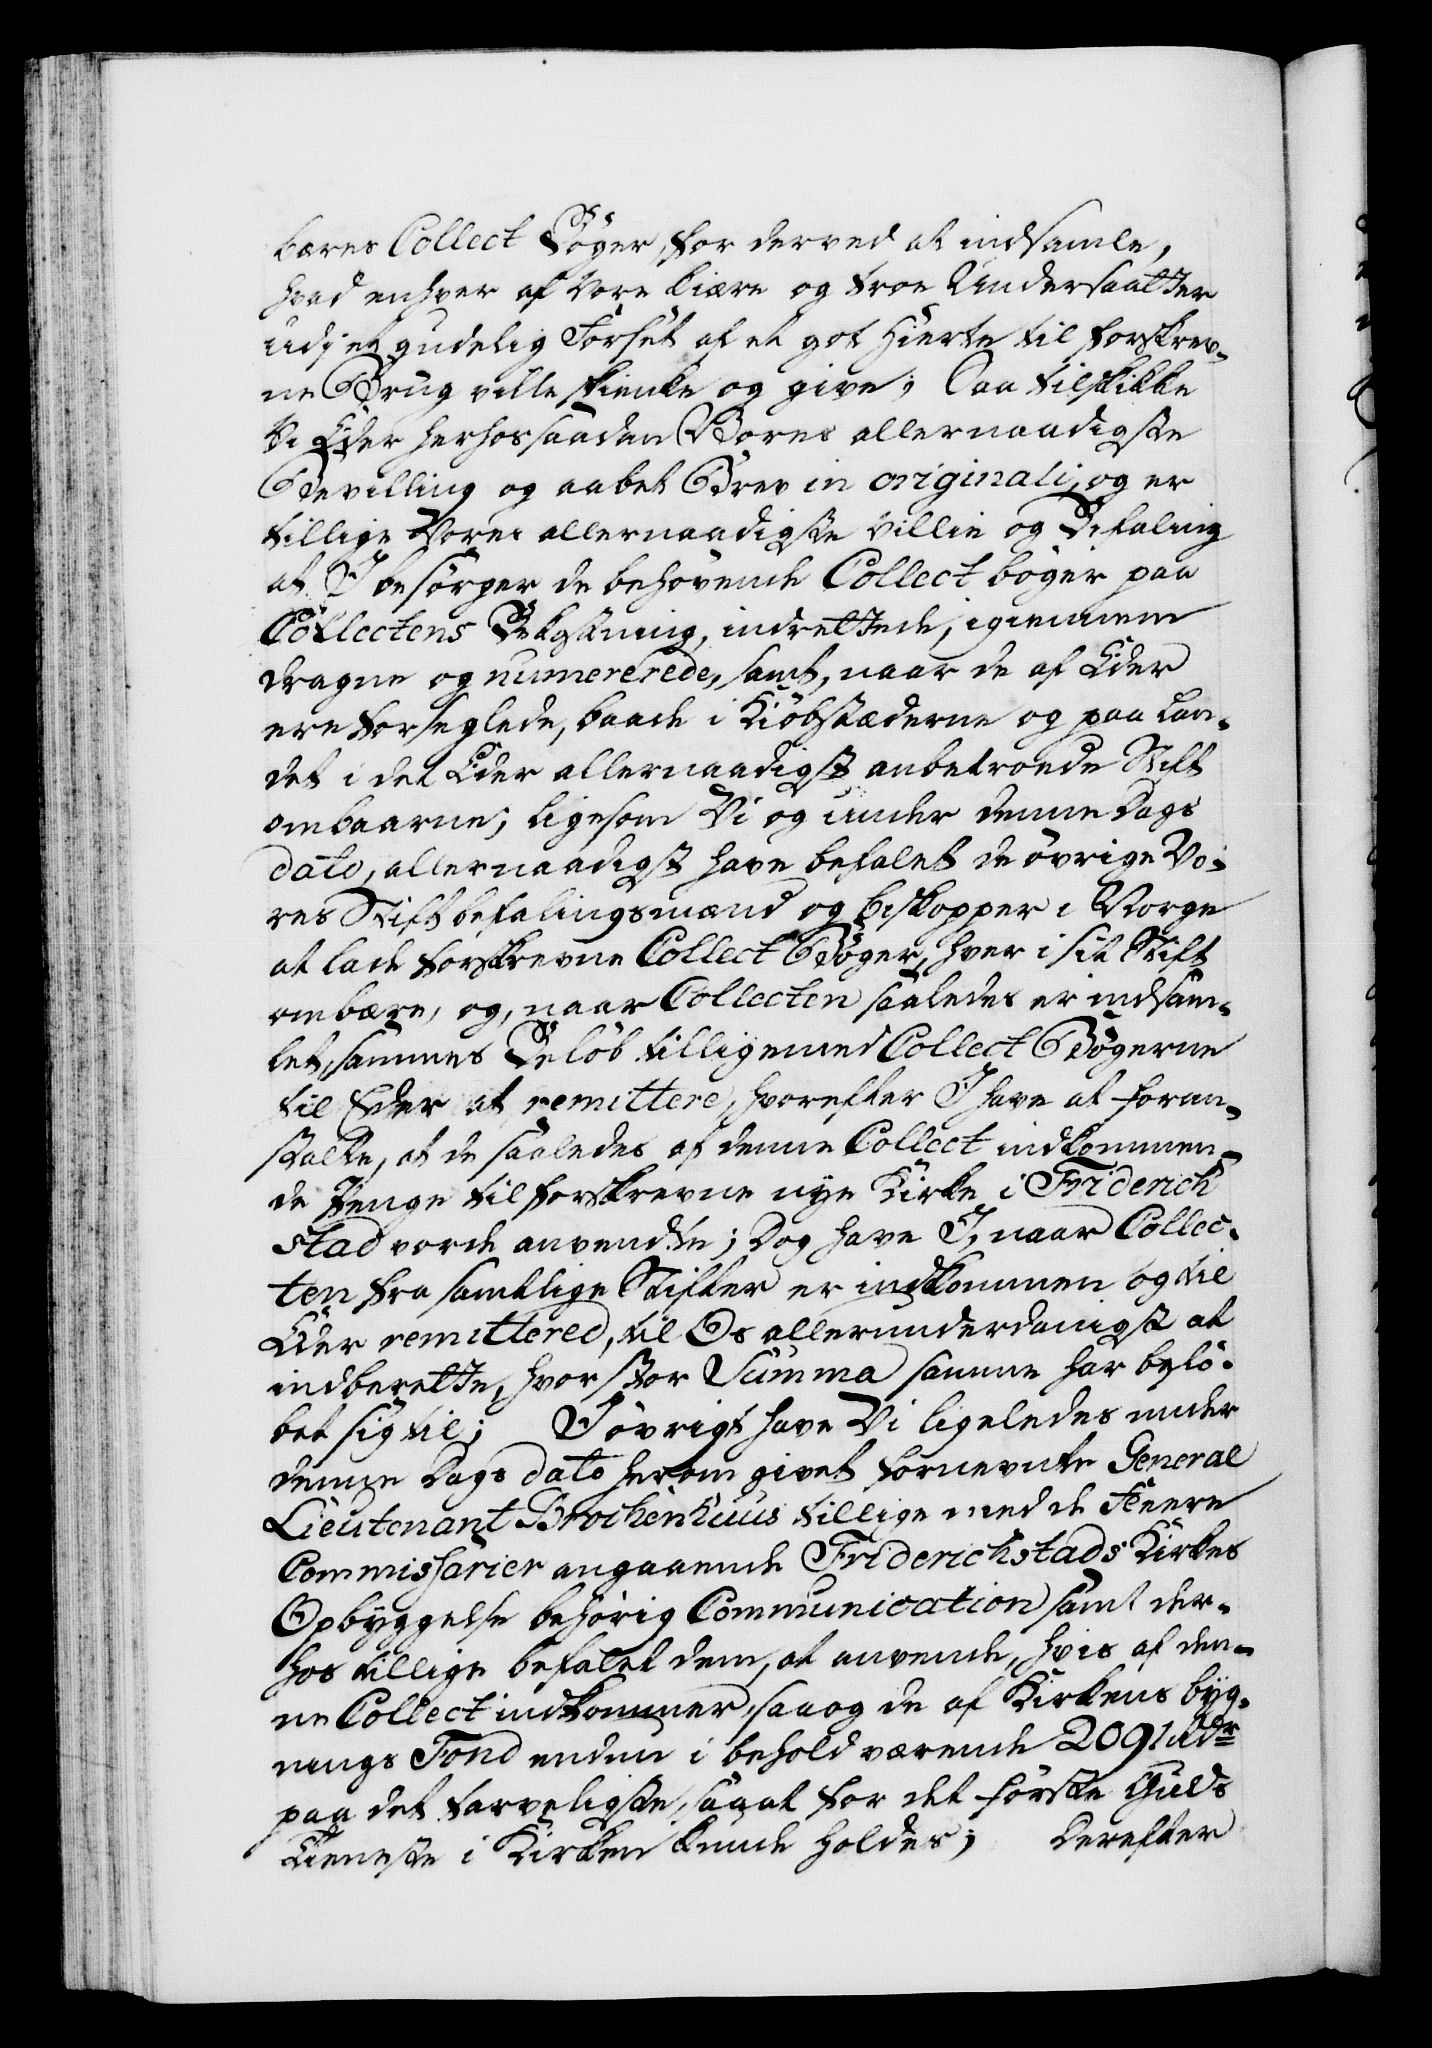 bæres Collect Bøger, for derved at indsamle,
hvad enhver af Vore kiære og troe Undersaatter
ud j et gudelig Forsæt af et got Hierte til forskrev-
ne Brug ville skienke og give; Saa tilskikke
Vi Eder herhos saadan Vores allernaadigste
Bevilling og aabet Brev in originali, og er
tillige Vores allernaadigste Villie og Befaling
at I besørger de behøvende Collect bøger paa
Collectens Bekostning, indrettede, igiennem
dragne og numererede, samt, naar de af Eder
ere forseglede, baade i Kiøbstæderne og paa Lan-
det i det Eder allernaadigst anbetroede Stift
ombaarne; ligesom Vi og under denne Dags
dato, allernaadigst have befalet de øvrige Vo-
res Stiftbefalingsmænd og Biskopper i Norge
at lade forskrevne Collect Bøger, hver i sit Stift
ombære, og, naar Collecten saaledes er indsam-
let, sammes Beløb tilligemed Collect Bøgerne
til Eder at remittere, hvorefter I have at foran-
stalte, at de saaledes af denne Collect indkommen-
de Penge til forskrevne nye Kirke i Friderich
stad vorde anvendte; Dog have I, naar Collec-
ten fra samtlige Stifter er indkommen og til
Eder remittered, til Os allerunderdanigst at
indberette, hvor stor Summa samme har belø-
bet sig til; I øvrigt have Vi ligeledes under
denne Dags dato herom givet fornevnte General
Lieutenant Brochenhuus tillige med de fleere
Commissarier angaaende Friderichstads Kirkes
Opbyggelse behørig Communication samt der-
hos tillige befalet dem, at anvende, hvis af den-
ne Collect indkommer, saa og de af Kirkens byg-
nings Fond endnu i behold værende 2091 rdr
paa det farveligste, saa at for det første Guds
Tieneste i Kirken kunde holdes; Derefter